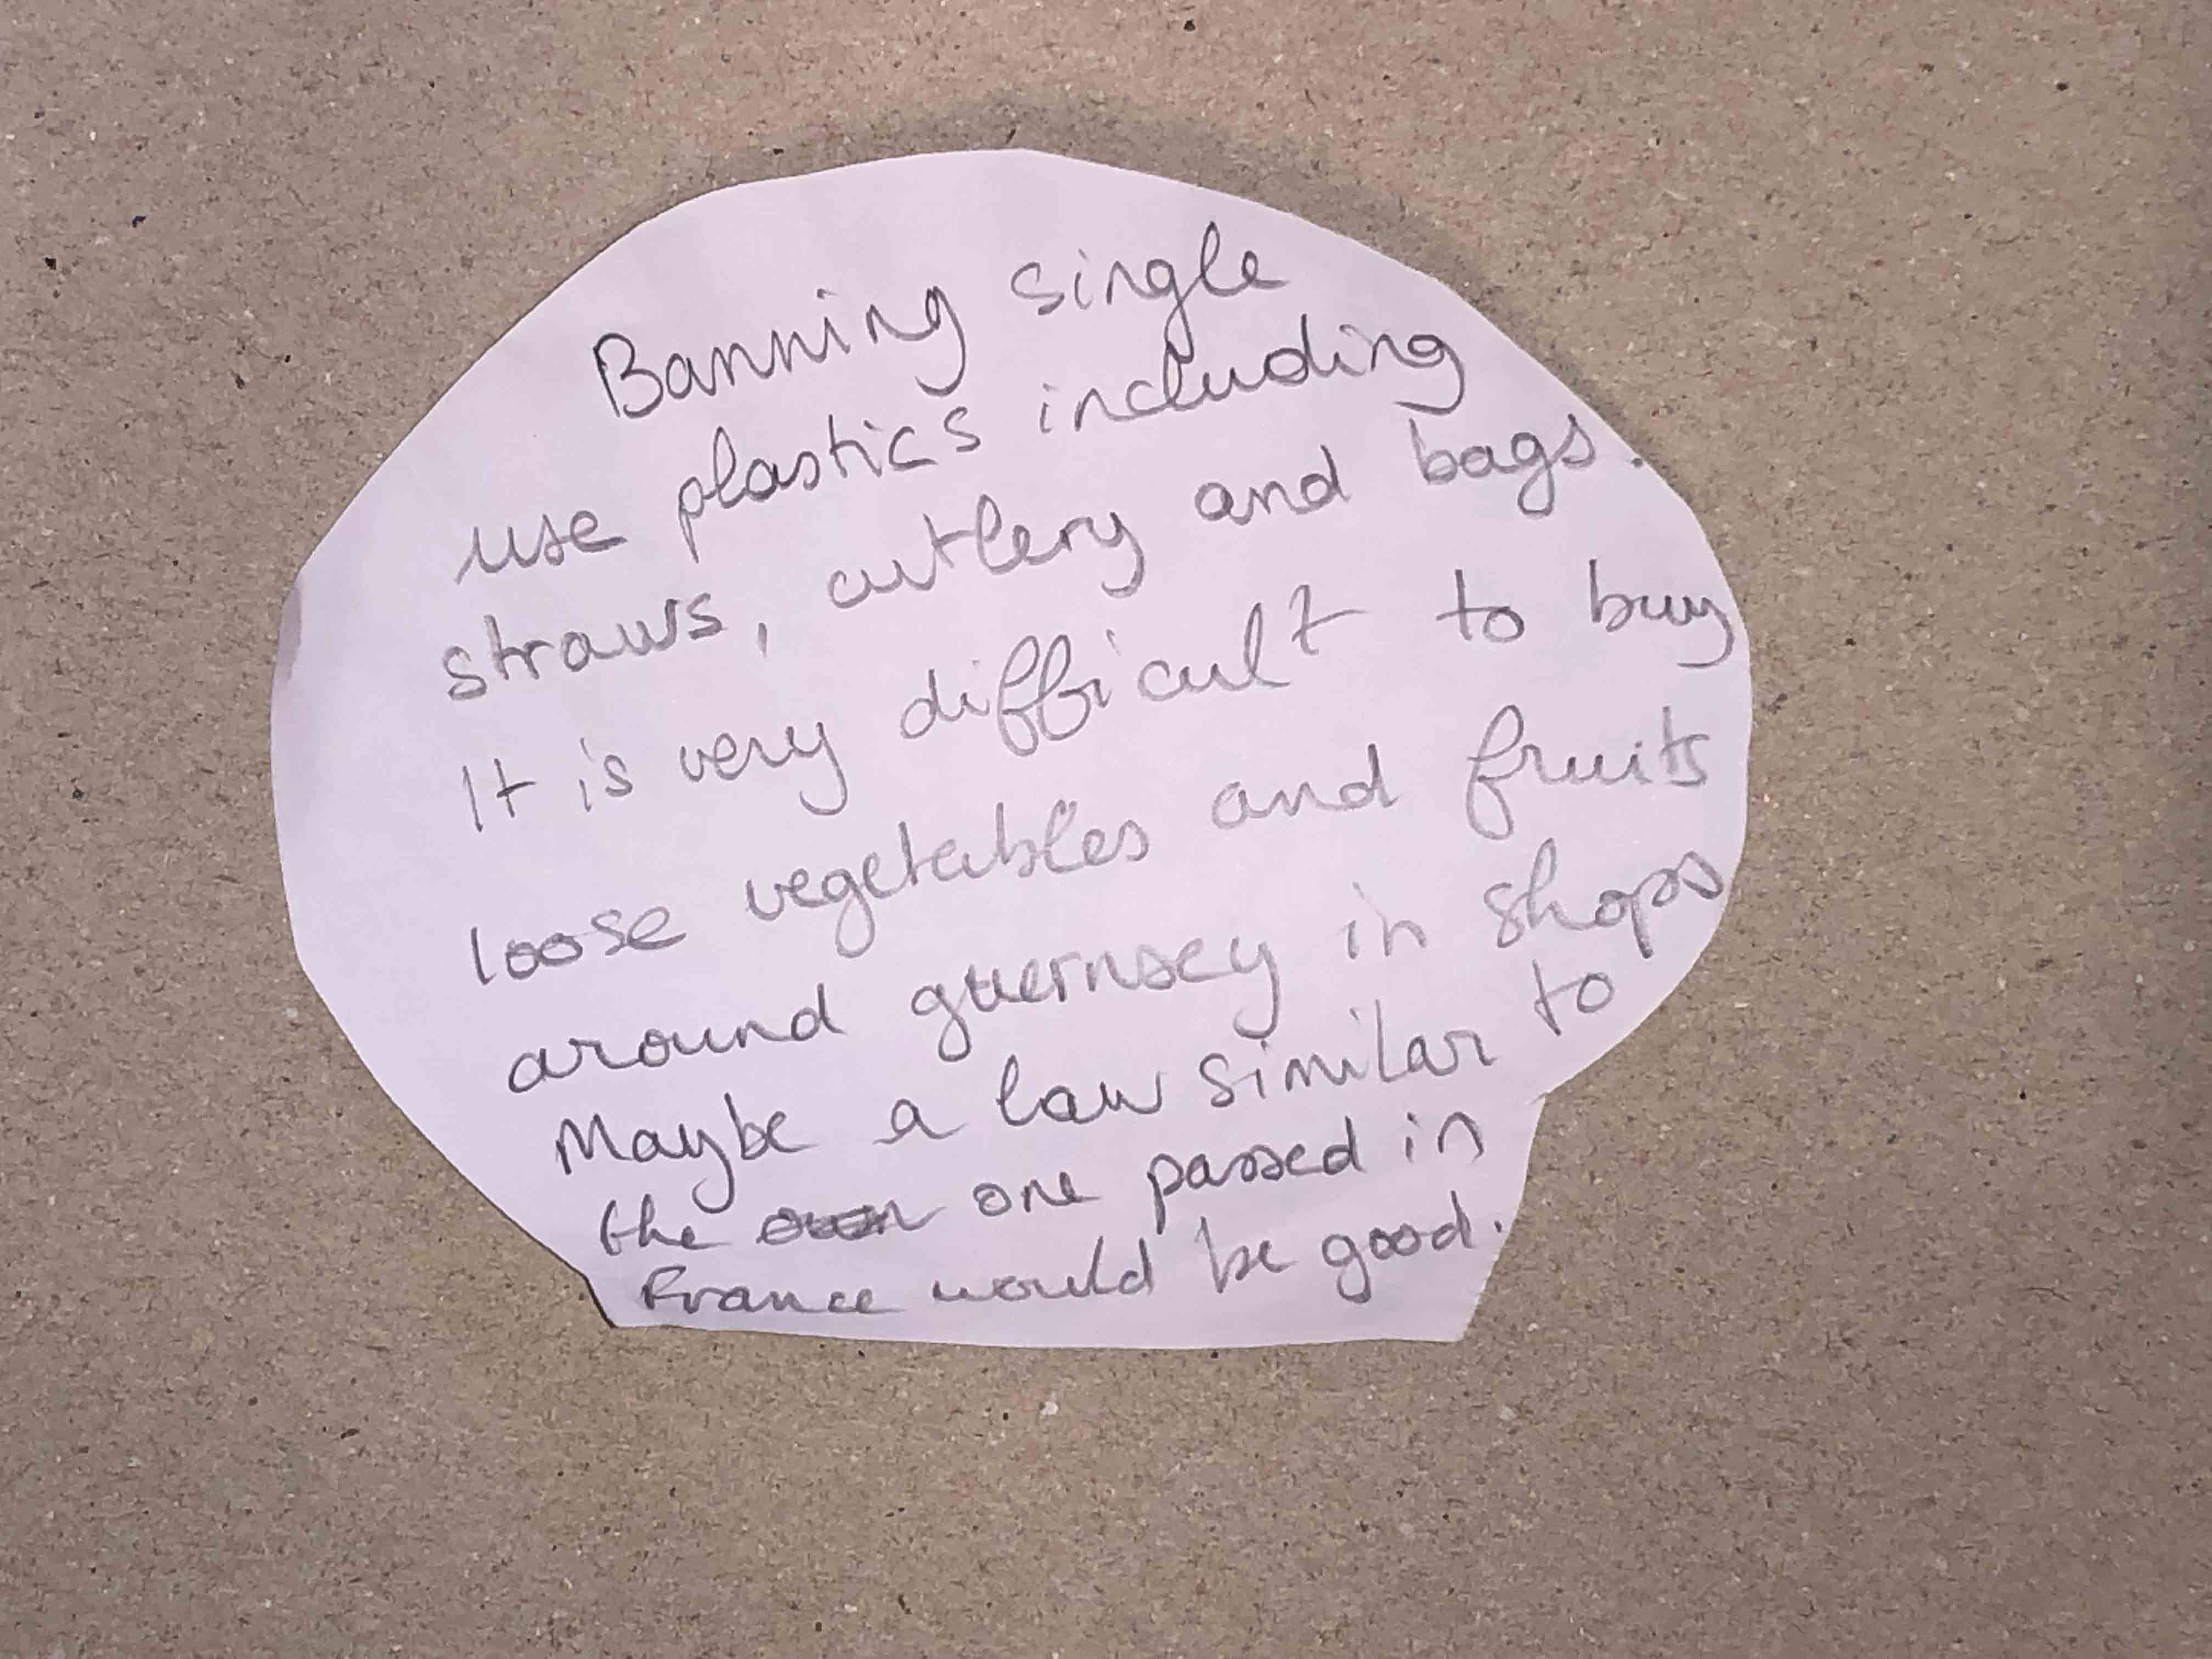 Banning single
use plastics including
straws, cutlery and bags.
It is very difficult to buy
loose vegetables and fruits
around guernsey in shops
Maybe a law similar to
the one passed in
France would be good.